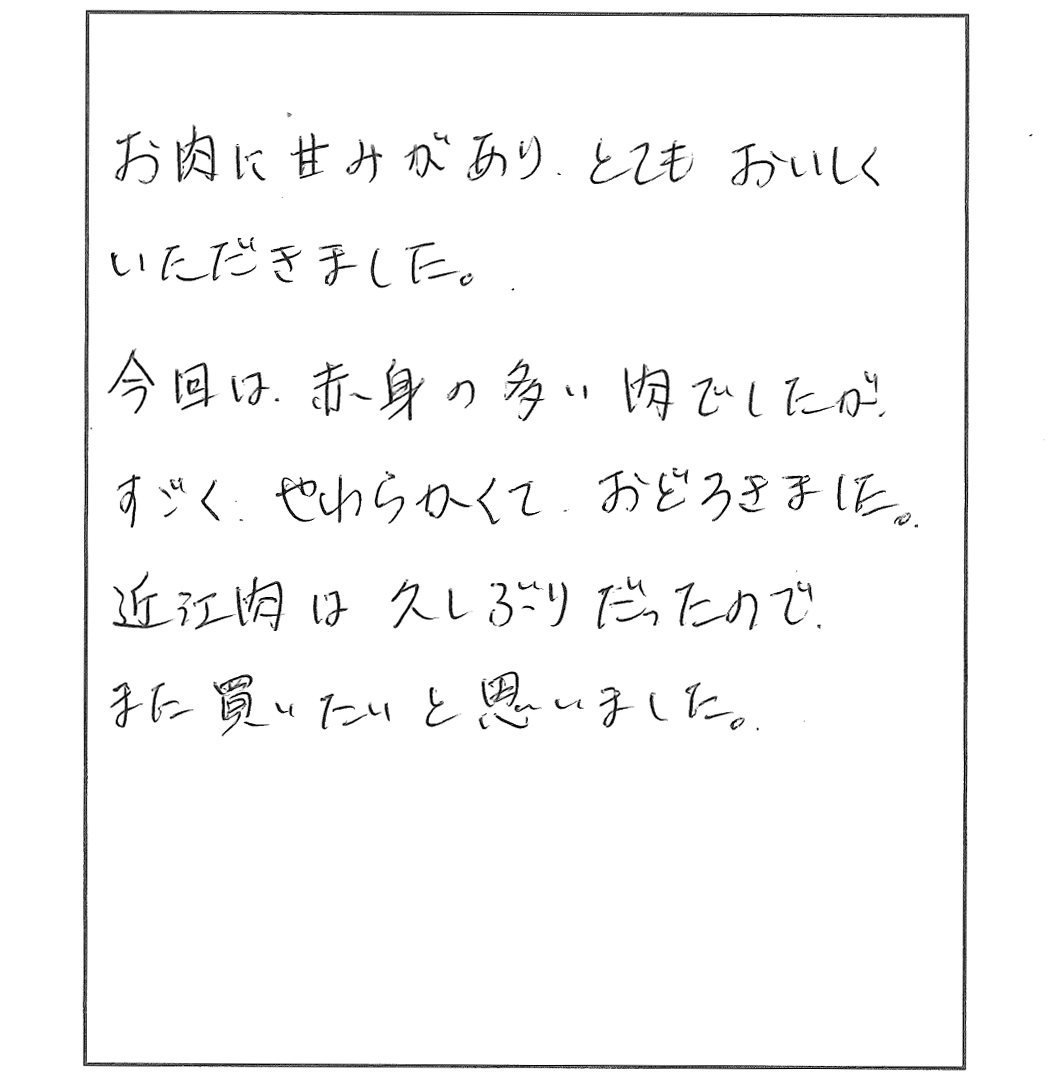 お肉に甘みがあり、とても おいしく
いただきました。
今回は、赤身の多い肉でしたが、
すごく、やわらかくて、おどろきました。
近江肉は 久しぶりだったので、
また買いたいと思いました。